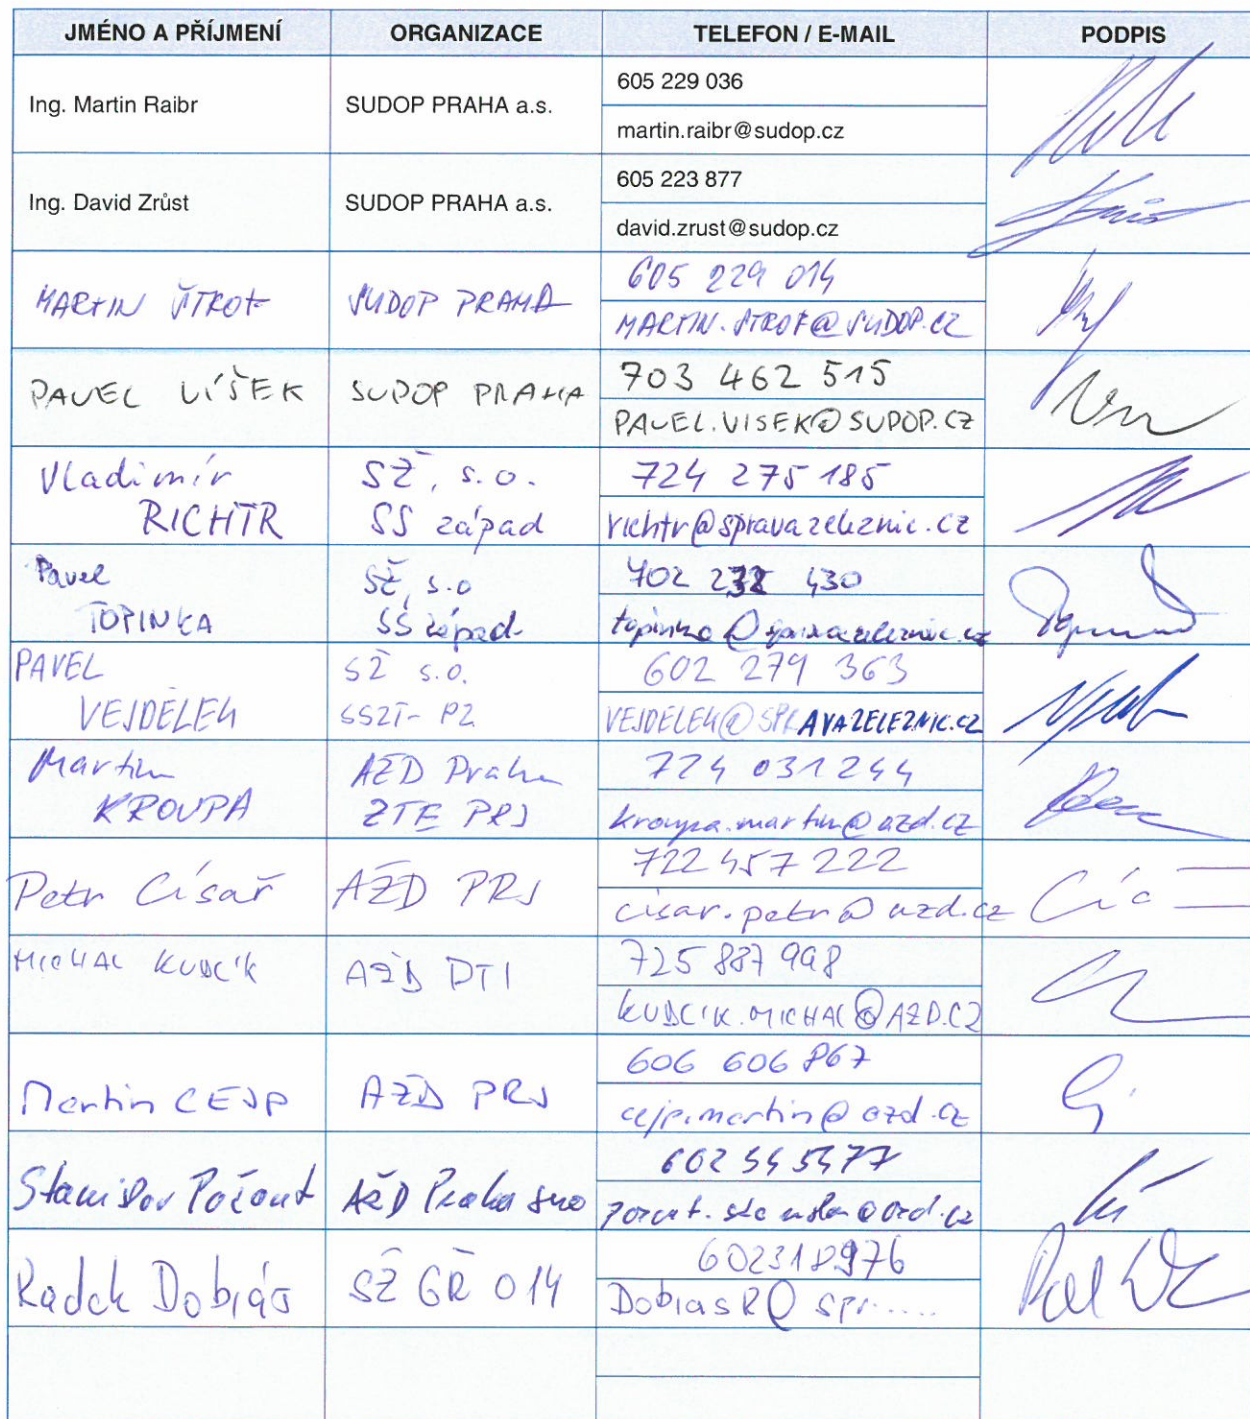 JMÉNO A PŘÍJMENÍ ORGANIZACE TELEFON / E-MAIL PODPIS
Ing. Martin Raibr SUDOP PRAHA a.s. 605 229 036
martin.raibr@sudop.cz
Ing. David Zrůst SUDOP PRAHA a.s. 605 223 877
david.zrust@sudop.cz
MARTIN ŠTROF SUDOP PRAHA 605 229 014
MARTIN.STROF@SUDOP.CZ
PAVEL VÍŠEK SUDOP PRAHA 703 462 515
PAVEL.VISEK@SUDOP.CZ
Vladimír SŽ, s.o. 724 275 185
RICHTR SS západ richtr@spravazeleznic.cz
Pavel SŽ, s.o 702 430
TOPINKA SS západ topinka@spravazeleznic.cz
PAVEL SŽ s.o. 602 279 363
VEJDĚLEK SSZT-PZ VEJDELEK@SPRAVAZELEZNIC.CZ
Martin AŽD Praha 724 031 244
KROUPA ZTE PRJ kroupa.martin@azd.cz
Petr Císař AŽD PRJ 722 457 222
cisar.petr@azd.cz
MICHAL KUBCÍK AŽD DTI 725 887 998
KUBCIK.MICHAL@AZD.CZ
Martin CEJP AŽD PRJ 606 606 867
cejp.martin@azd.cz
Stanislav Počout AŽD Praha 602
@azd.cz
Radek Dobiáš SŽ GŘ O14 602318976
DobiasR@spr.....